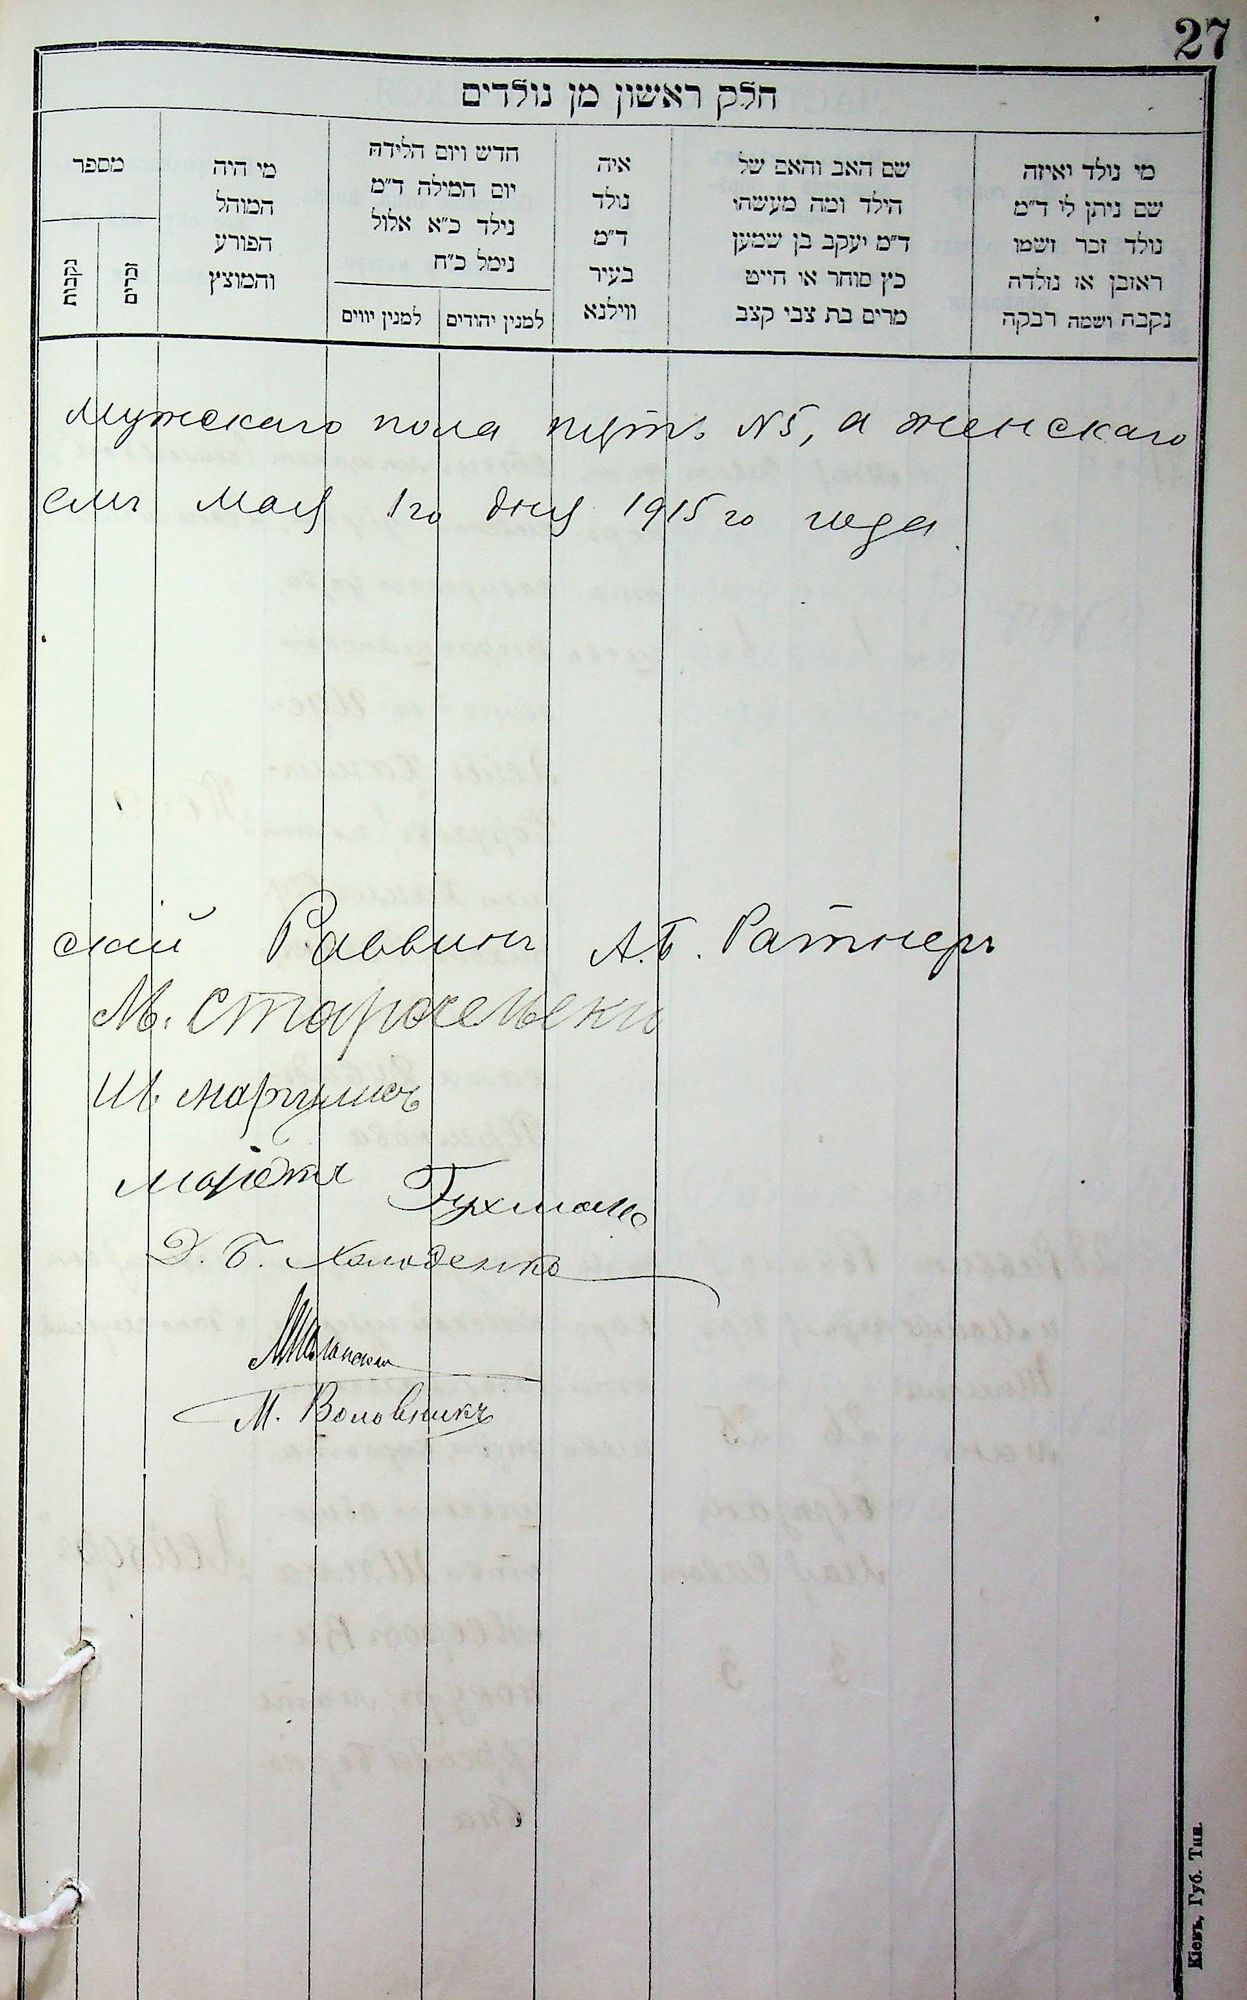 27
חלק ראשון מן נולדים
מי נולד ואיזה
שם ניתן לו ד"מ
נולד זכר ושמו
ראובן או נולדה
נקבה ושמה רבקה
שם האב והאם של
הילד ומה מעשהו
ד"מ יעקב בן שמעון
כץ סוחר או חייט
מרים בת צבי קצב
איה
נולד
ד"מ
בעיר
ווילנא
חדש ויום הלידה
יום המילה ד"מ
נילד כ"א אלול
נימל כ"ח
למנין יהודים
למנין יווים
מי היה
המוהל
הפורע
והמוצץ
מספר
זכרים
נקבות
мужскаго пола пять №5, а женскаго
емъ мая 1го дня 1915го года.
скій Раввинъ А.Б. Ратнеръ
М. Старосельски
Ш. Маргулисъ
Гухманъ
Д. Б. Холоденко
М. Воловникъ
Кіевъ, Губ. Тип.